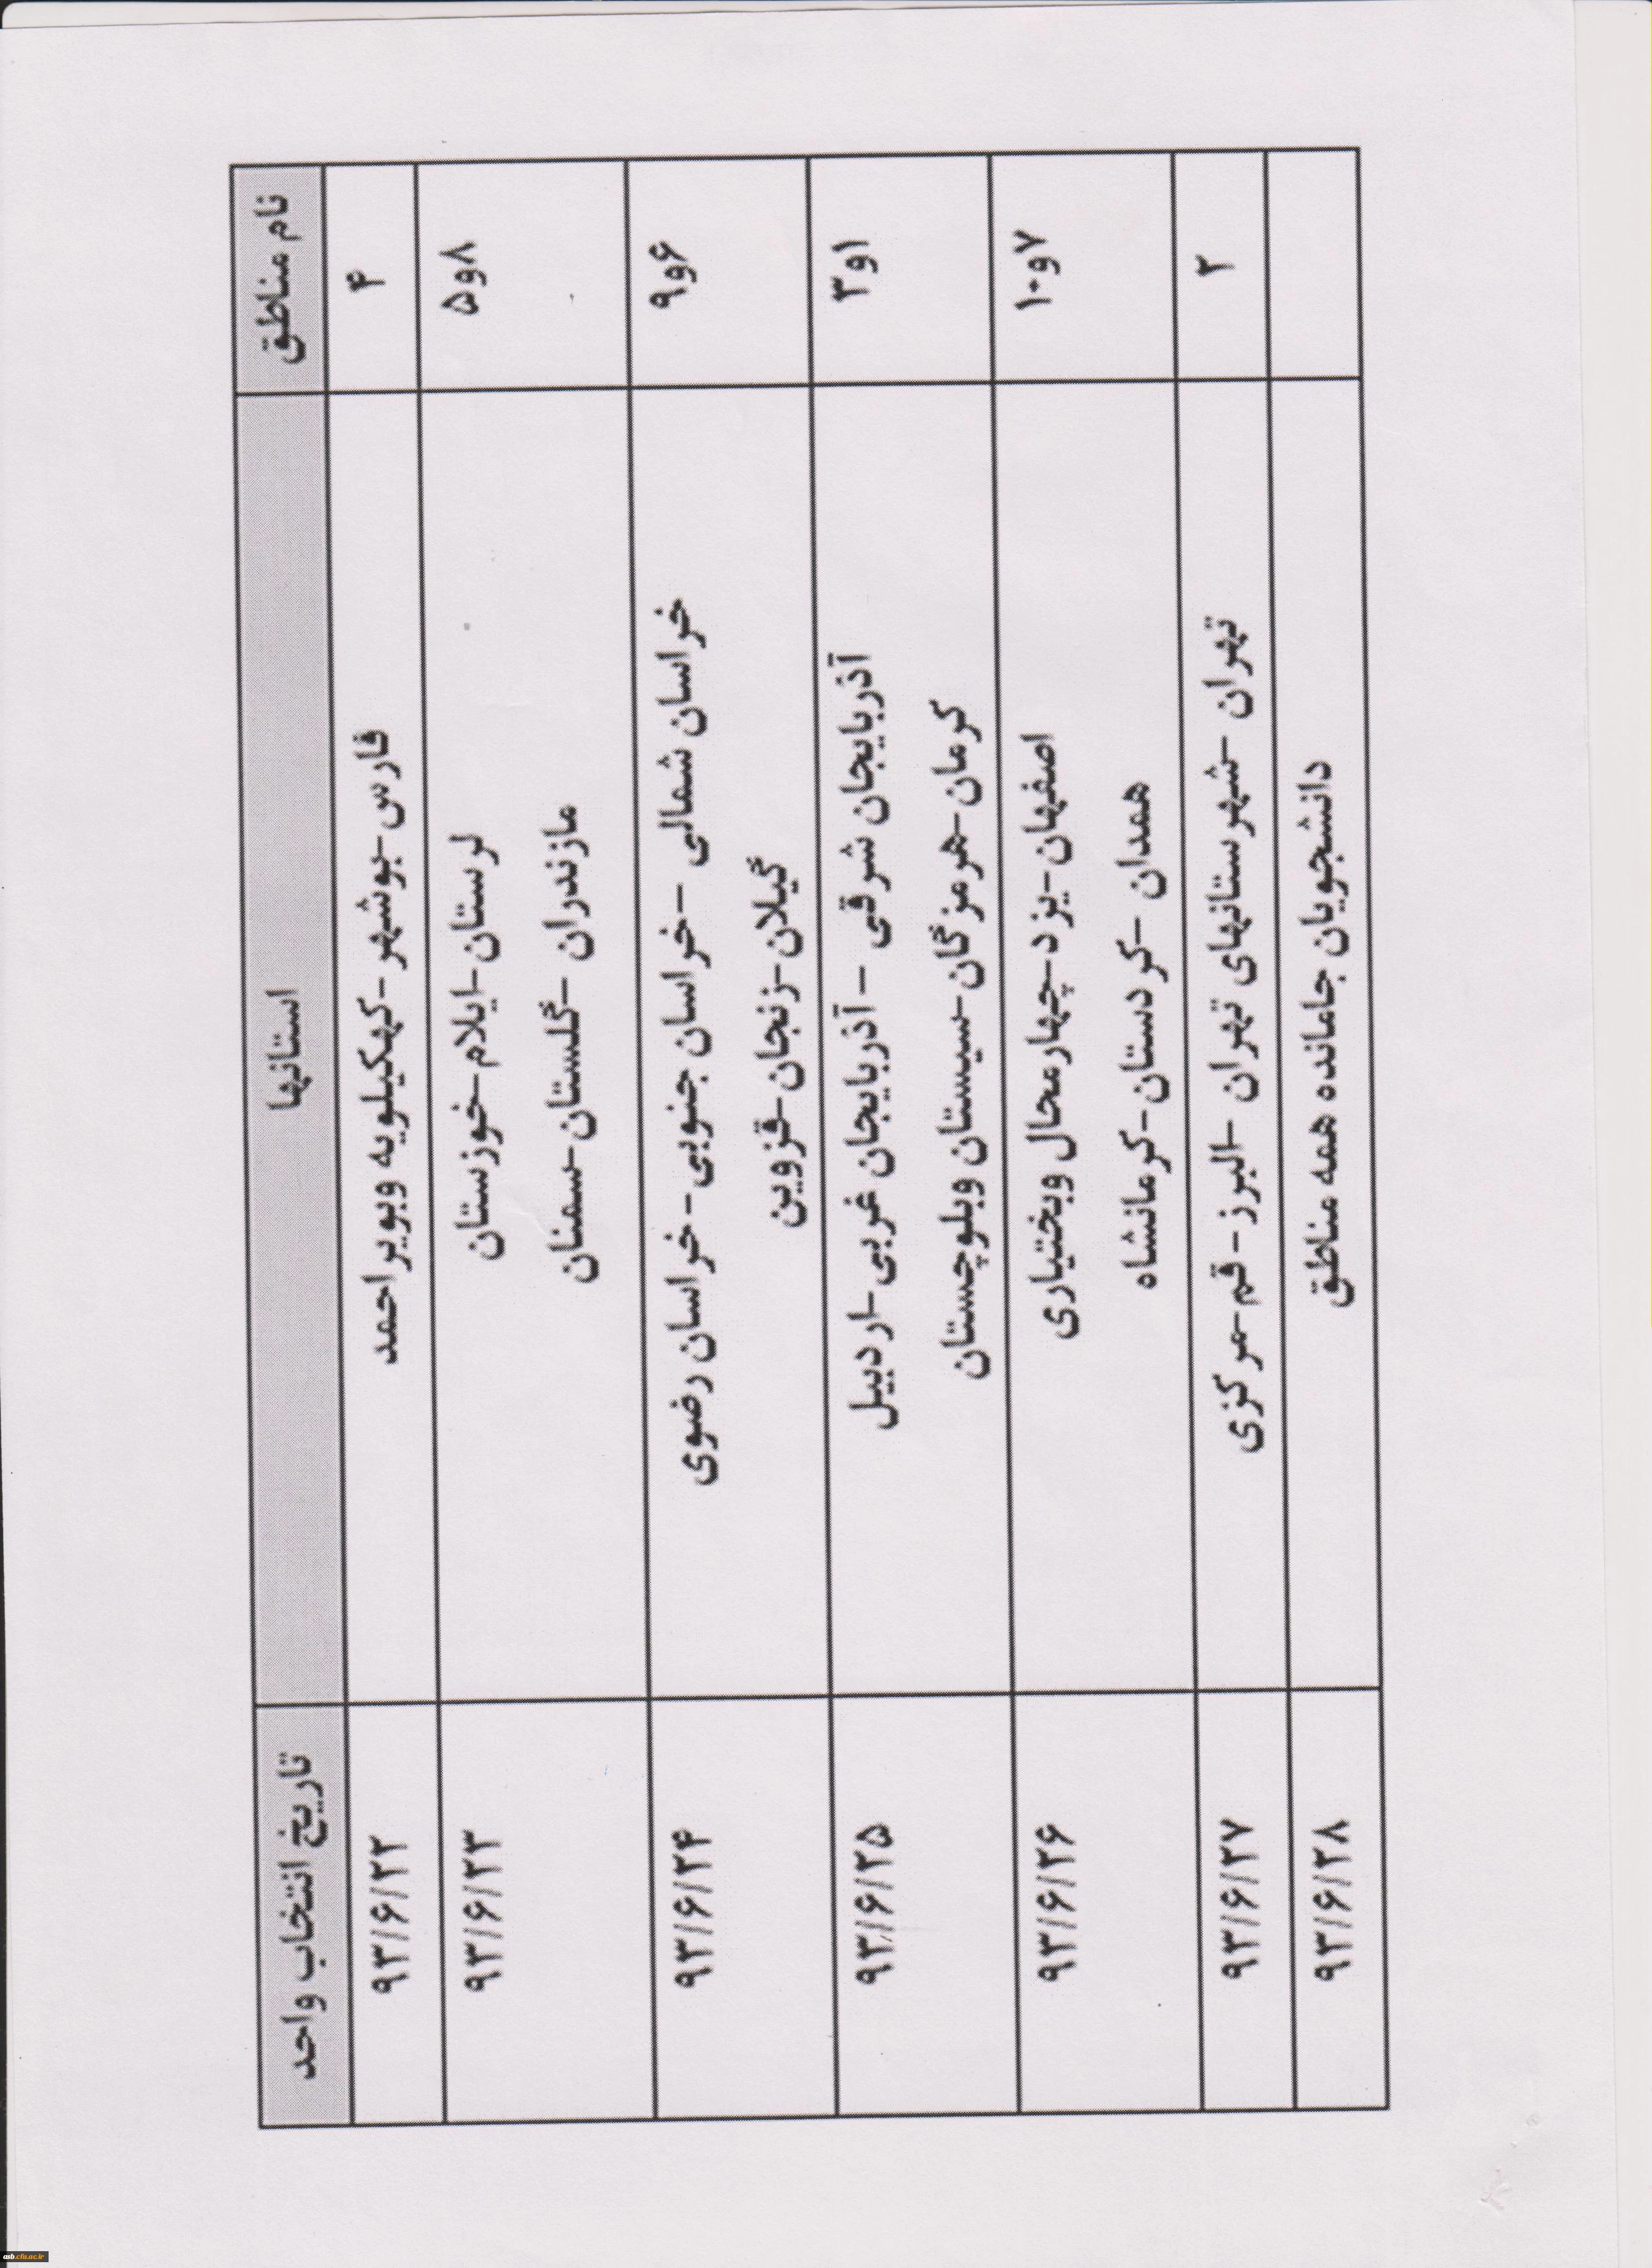 نام مناطق
استانها
تاریخ انتخاب واحد
۴
فارس-بوشهر-کهکیلویه وبویراحمد
۹۳/۶/۲۲
۸و۵
لرستان-ایلام-خوزستان
مازندران-گلستان-سمنان
۹۳/۶/۲۳
۶و۹
خراسان شمالی - خراسان جنوبی- خراسان رضوی
گیلان-زنجان-قزوین
۹۳/۶/۲۴
۱و۳
آذربایجان شرقی - آذربایجان غربی-اردبیل
کرمان-هرمزگان-سیستان وبلوچستان
۹۳/۶/۲۵
۷و۱۰
اصفهان-یزد-چهارمحال وبختیاری
همدان -کردستان-کرمانشاه
۹۳/۶/۲۶
۲
تهران -شهرستانهای تهران -البرز- قم-مرکزی
۹۳/۶/۲۷
دانشجویان جامانده همه مناطق
۹۳/۶/۲۸
asb.cfu.ac.ir